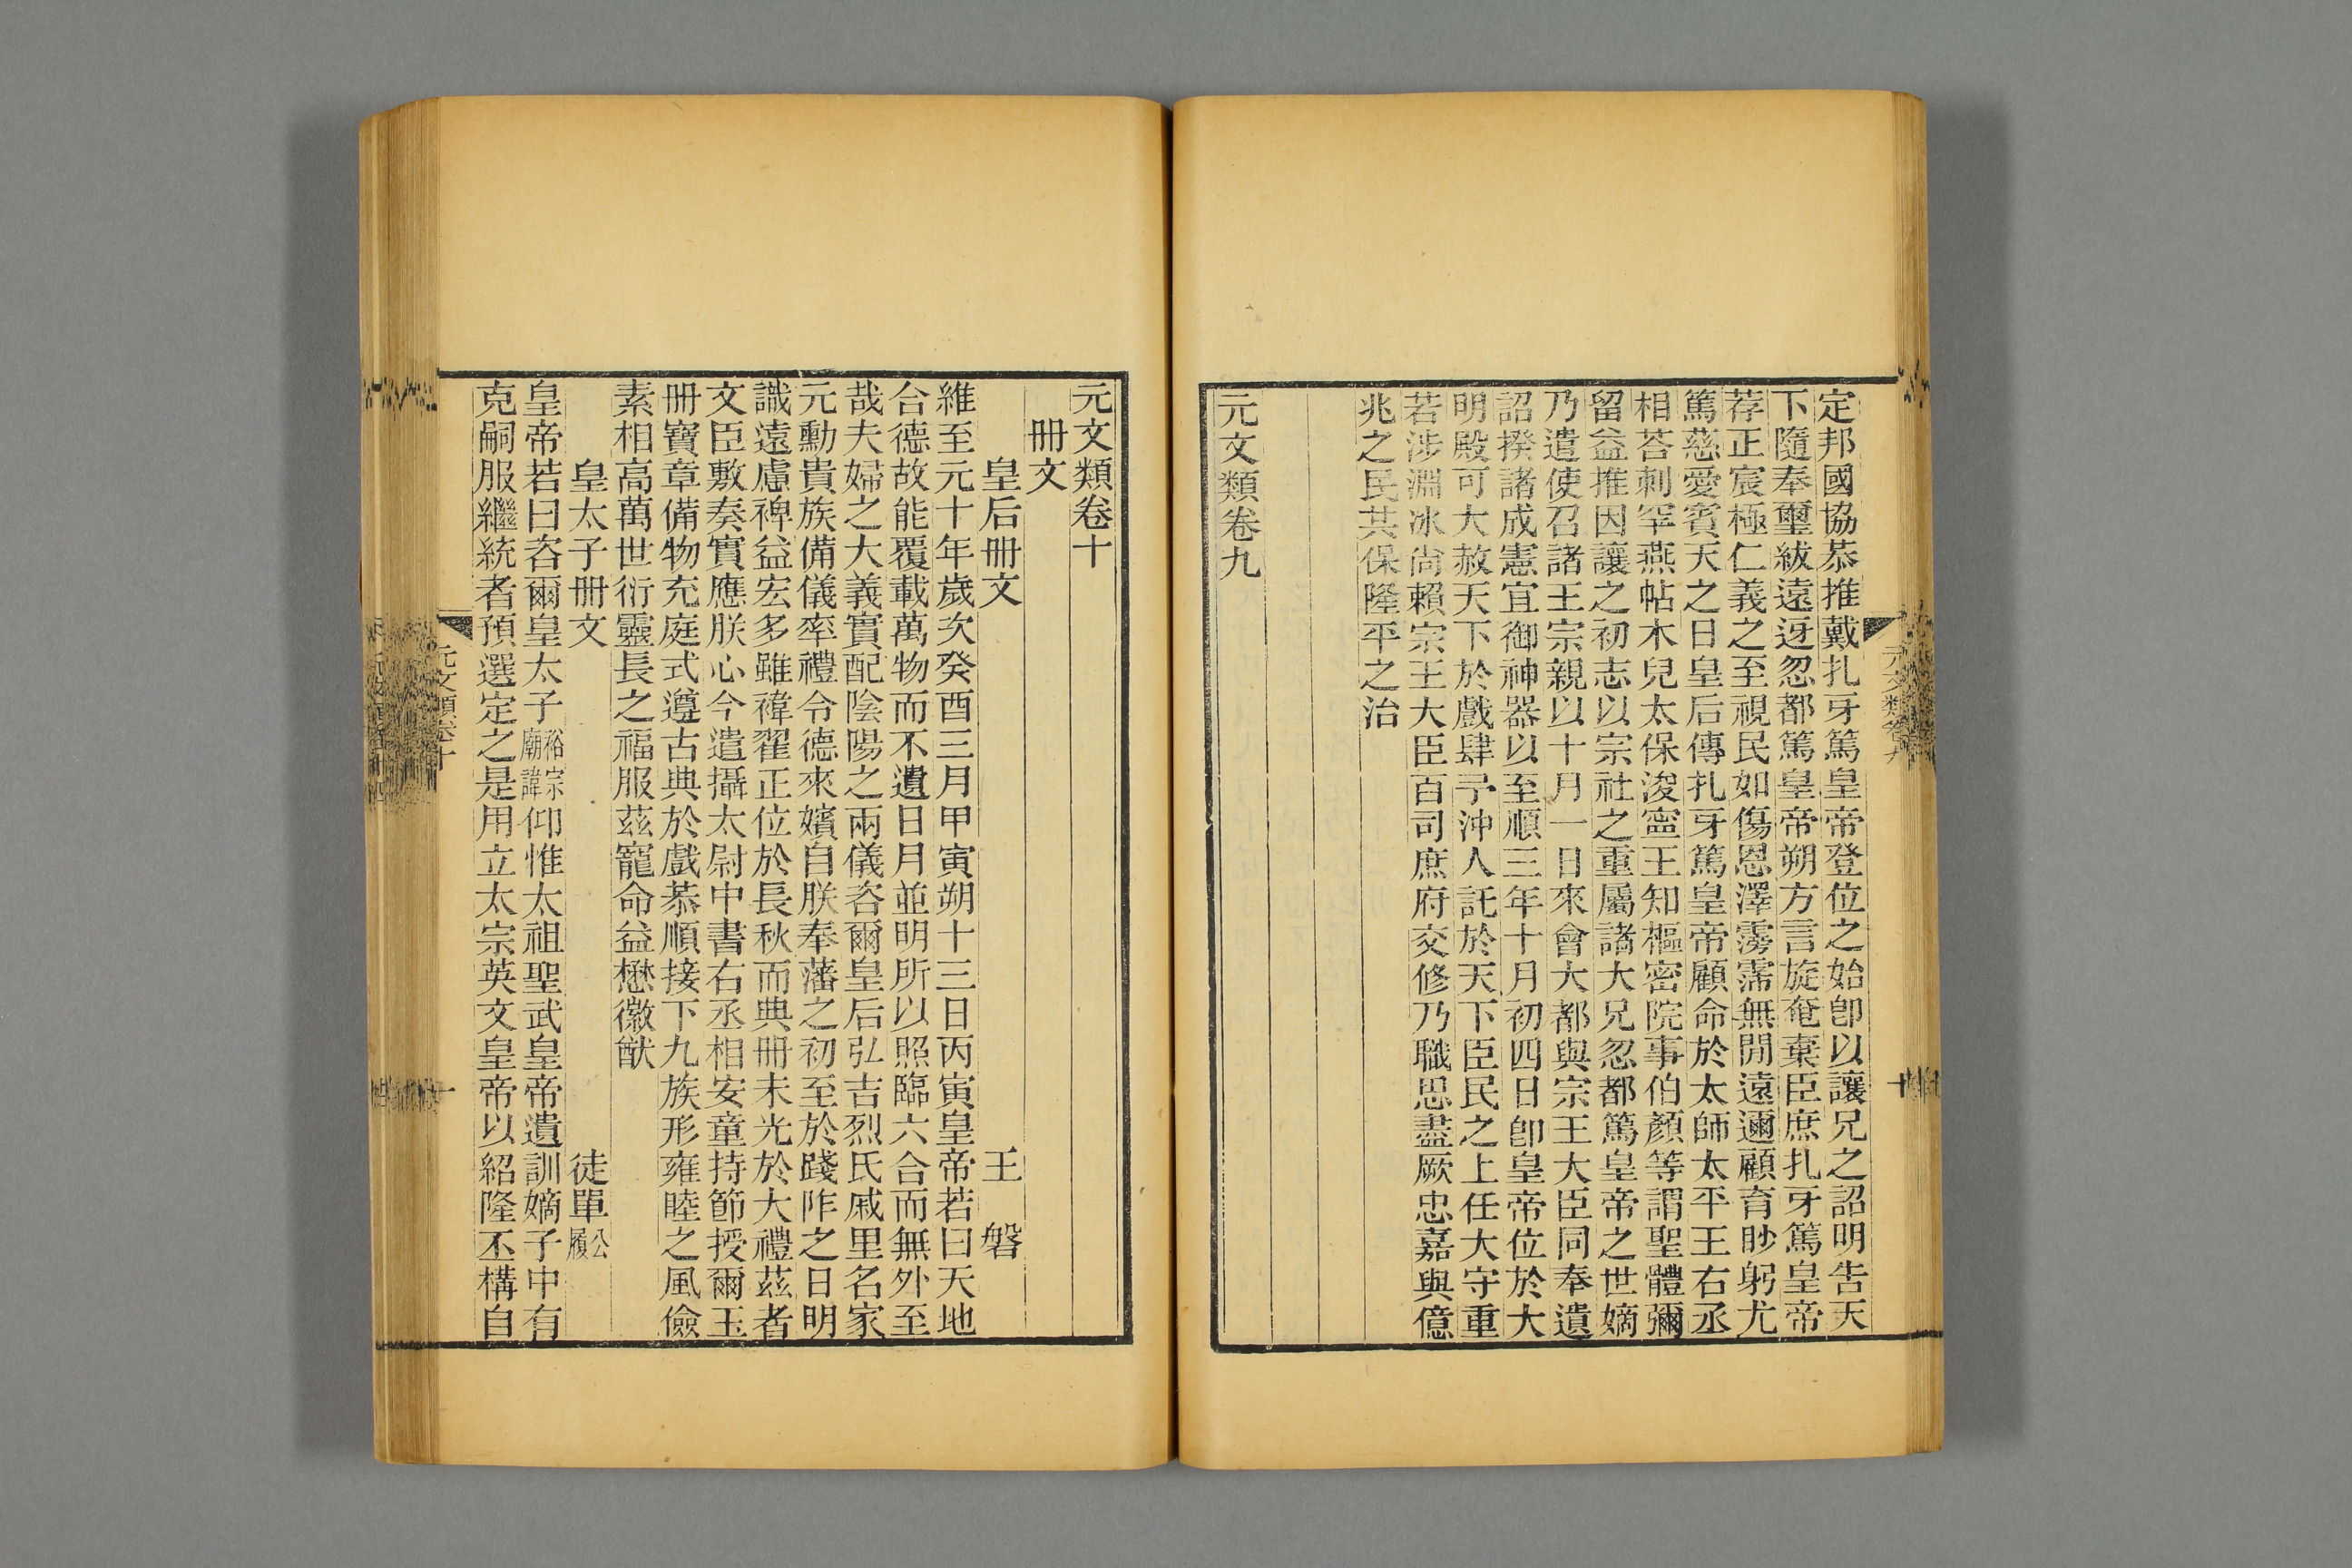 定邦國協恭推戴扎牙篤皇帝登位之始卽以讓兄之詔明告天
下隨奉璽紱遠迓忽都篤皇帝朔方言旋奄棄臣庶扎牙篤皇帝
荐正宸極仁義之至視民如傷恩澤霶霈無閒遠邇顧育眇躬尤
篤慈愛賓天之日皇后傳扎牙篤皇帝顧命於太師太平王右丞
相荅剌罕燕帖木兒太保浚寧王知樞密院事伯顏等謂聖體彌
留益推因讓之初志以宗社之重屬諸大兄忽都篤皇帝之世嫡
乃遣使召諸王宗親以十月一日來會大都與宗王大臣同奉遺
詔揆諸成憲宜御神器以至順三年十月初四日卽皇帝位於大
明殿可大赦天下於戲肆予沖人託於天下臣民之上任大守重
若涉淵冰尙賴宗王大臣百司庶府交修乃職思盡厥忠嘉與億
兆之民共保隆平之治
元文類卷九
元文類卷九
十
元文類卷十
冊文
皇后冊文 王磐
維至元十年歲次癸酉三月甲寅朔十三日丙寅皇帝若曰天地
合德故能覆載萬物而不遺日月並明所以照臨六合而無外至
哉夫婦之大義實配陰陽之兩儀咨爾皇后弘吉烈氏戚里名家
元勳貴族備儀率禮令德來嬪自朕奉藩之初至於踐阼之日明
識遠慮裨益宏多雖褘翟正位於長秋而典冊未光於大禮茲者
文臣敷奏實應朕心今遣攝太尉中書右丞相安童持節授爾玉
冊寶章備物充庭式遵古典於戲恭順接下九族形雍睦之風儉
素相高萬世衍靈長之福服茲寵命益懋徽猷
皇太子冊文 徒單公履
皇帝若曰咨爾皇太子裕宗廟諱仰惟太祖聖武皇帝遺訓嫡子中有
克嗣服繼統者預選定之是用立太宗英文皇帝以紹隆丕構自
元文類卷十
一